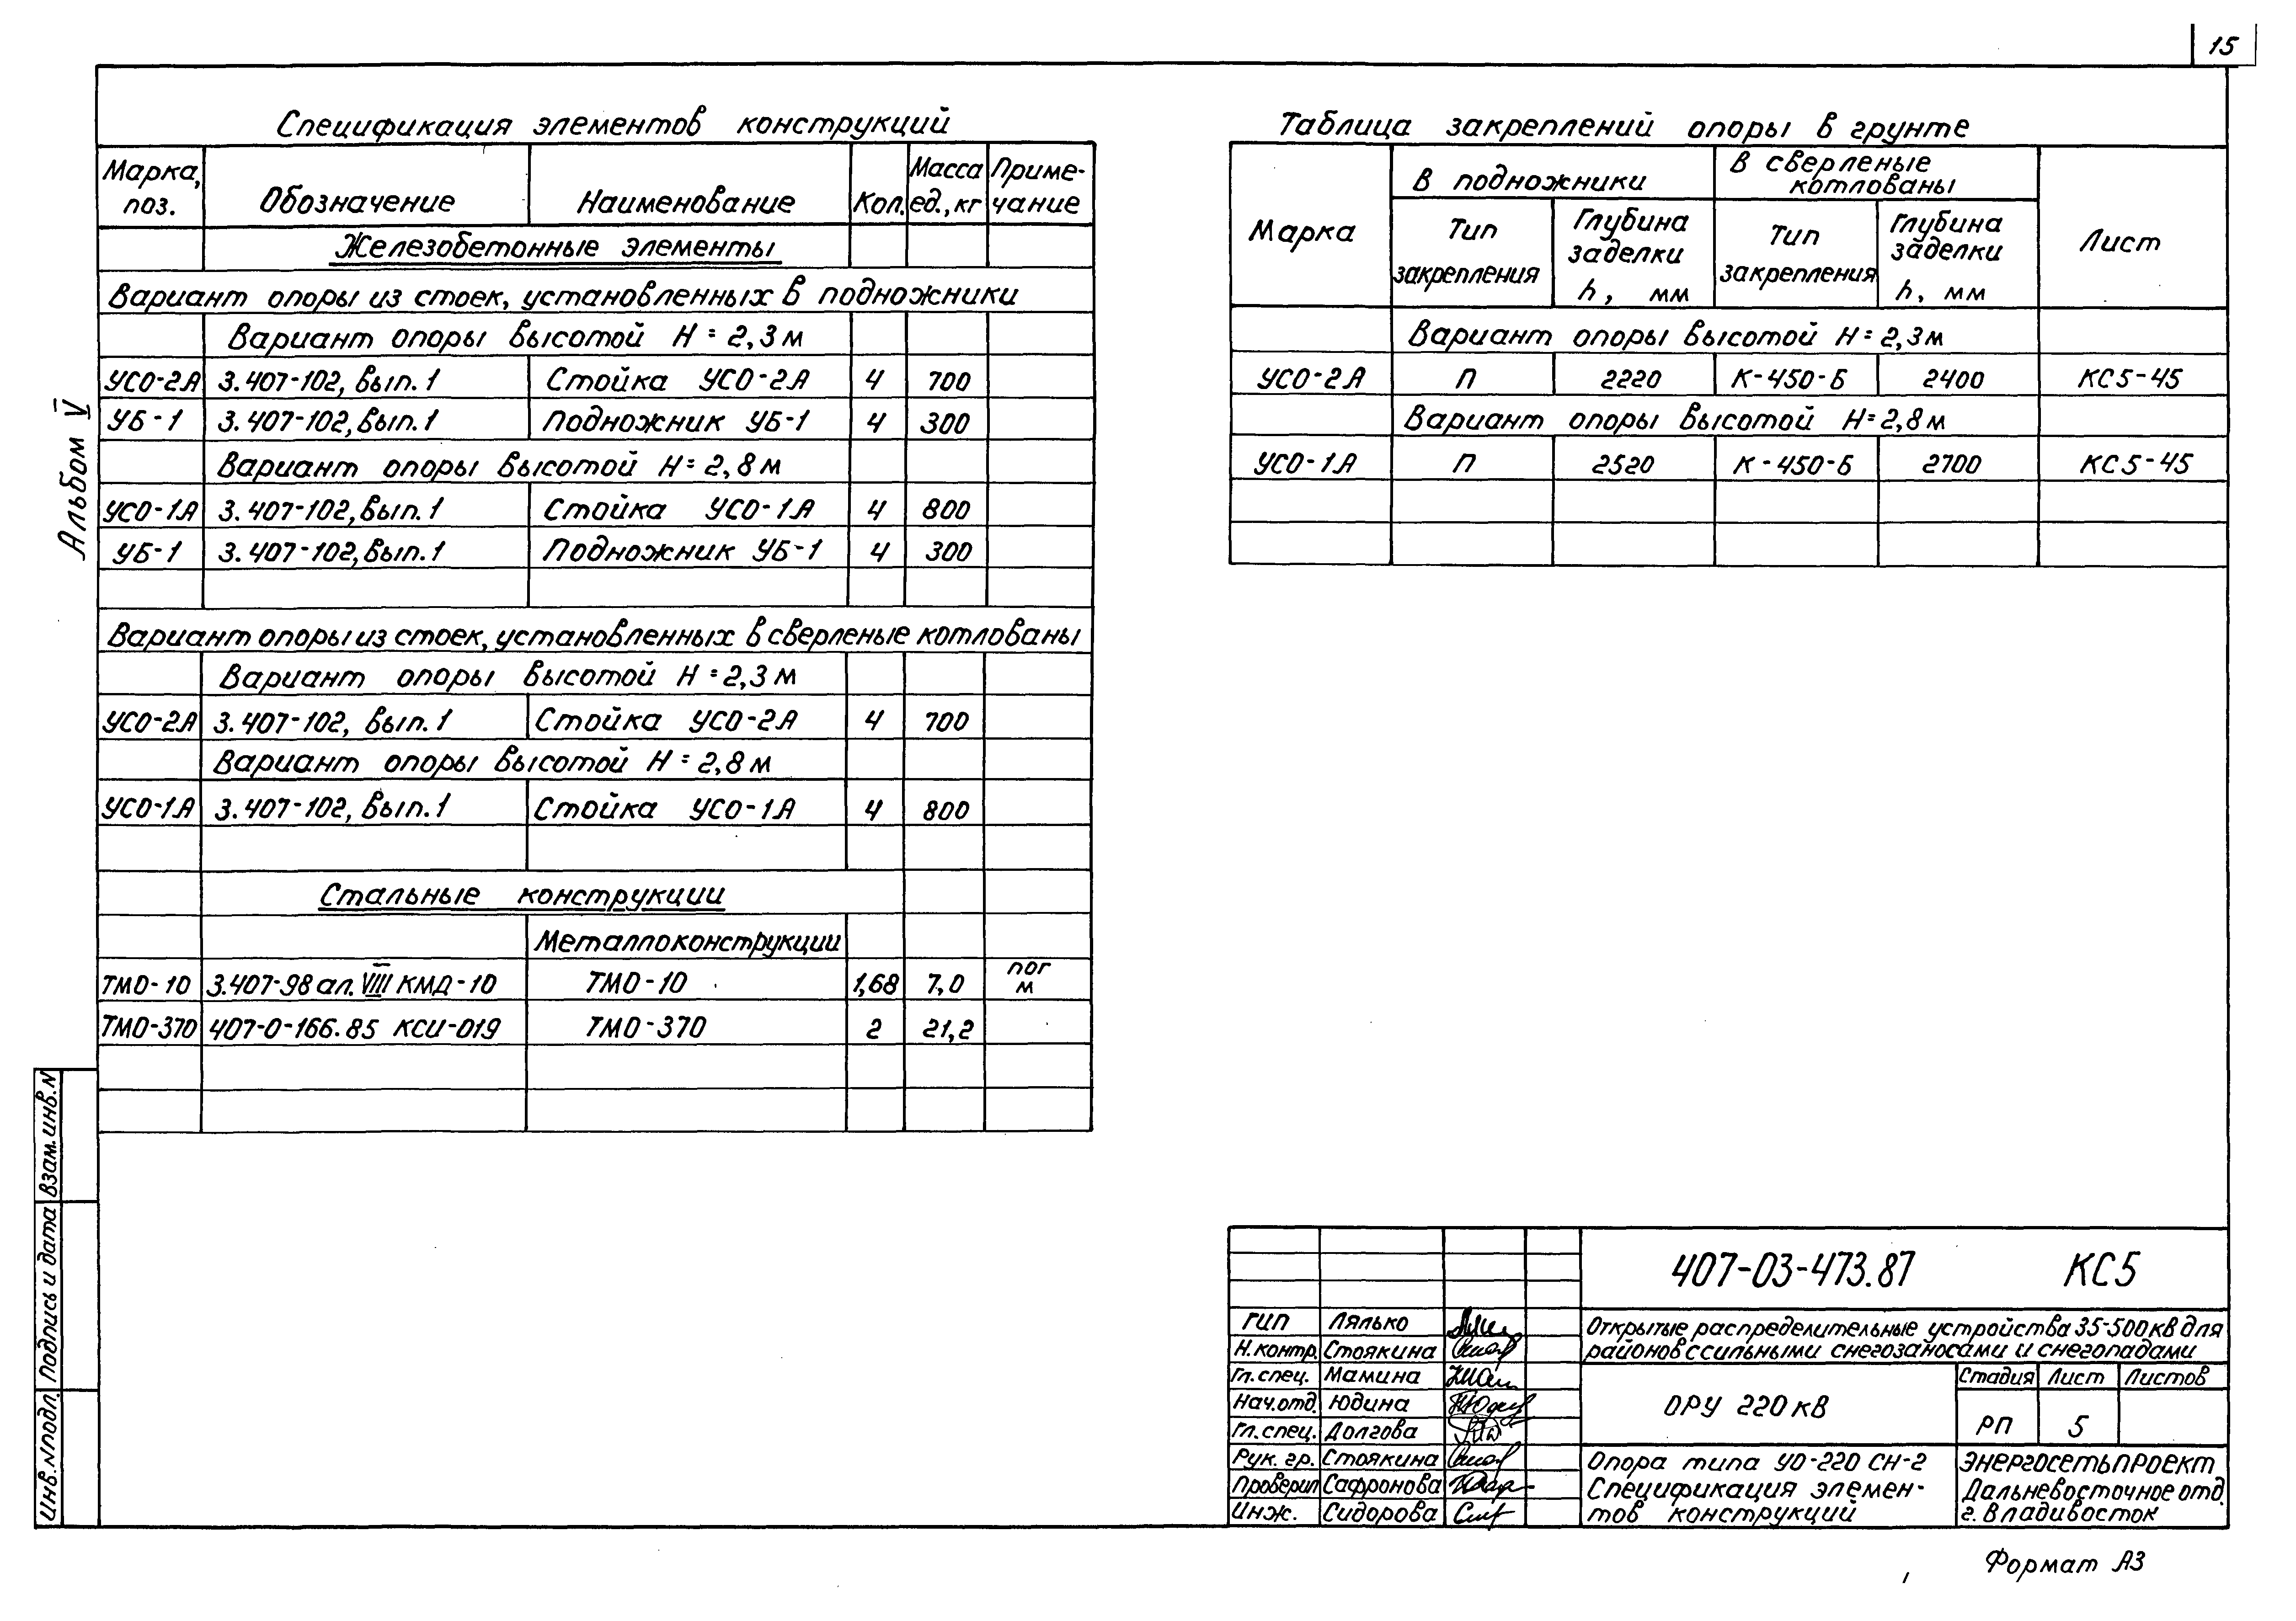 15
Альбом V
Спецификация элементов конструкций
Марка, поз. Обозначение Наименование Кол. Масса ед., кг Приме-чание
Железобетонные элементы
Вариант опоры из стоек, установленных в подножники
Вариант опоры высотой Н=2,3м
УСО-2А 3.407-102, вып.1 Стойка УСО-2А 4 700
УБ-1 3.407-102, вып.1 Подножник УБ-1 4 300
Вариант опоры высотой Н=2,8м
УСО-1А 3.407-102, вып.1 Стойка УСО-1А 4 800
УБ-1 3.407-102, вып.1 Подножник УБ-1 4 300
Вариант опоры из стоек, установленных в сверленые котлованы
Вариант опоры высотой Н=2,3м
УСО-2А 3.407-102, вып.1 Стойка УСО-2А 4 700
Вариант опоры высотой Н=2,8м
УСО-1А 3.407-102, вып.1 Стойка УСО-1А 4 800
Стальные конструкции
Металлоконструкции
ТМО-10 3.407-98 ал. VIII КМД-10 ТМО-10 1,68 7,0 пог м
ТМО-370 407-0-166.85 КСИ-019 ТМО-370 2 21,2
Таблица закреплений опоры в грунте
Марка В подножники В сверленые котлованы Лист
Тип закрепления Глубина заделки h, мм Тип закрепления Глубина заделки h, мм
Вариант опоры высотой Н=2,3м
УСО-2А П 2220 К-450-Б 2400 КС5-45
Вариант опоры высотой Н=2,8м
УСО-1А П 2520 К-450-Б 2700 КС5-45
Взам.инв.N
Подпись и дата
Инв.Nподл.
407-03-473.87 КС5
ГИП Лялько
Н.контр. Стоякина
Гл.спец. Мамина
Нач.отд. Юдина
Гл.спец. Долгова
Рук. гр. Стоякина
Проверил Сафронова
Инж. Сидорова
Открытые распределительные устройства 35-500кВ для
районов с сильными снегозаносами и снегопадами
ОРУ 220кВ
Стадия Лист Листов
РП 5
Опора типа УО-220 СН-2
Спецификация элемен-
тов конструкций
Энергосетьпроект
Дальневосточное отд.
г. Владивосток
Формат А3